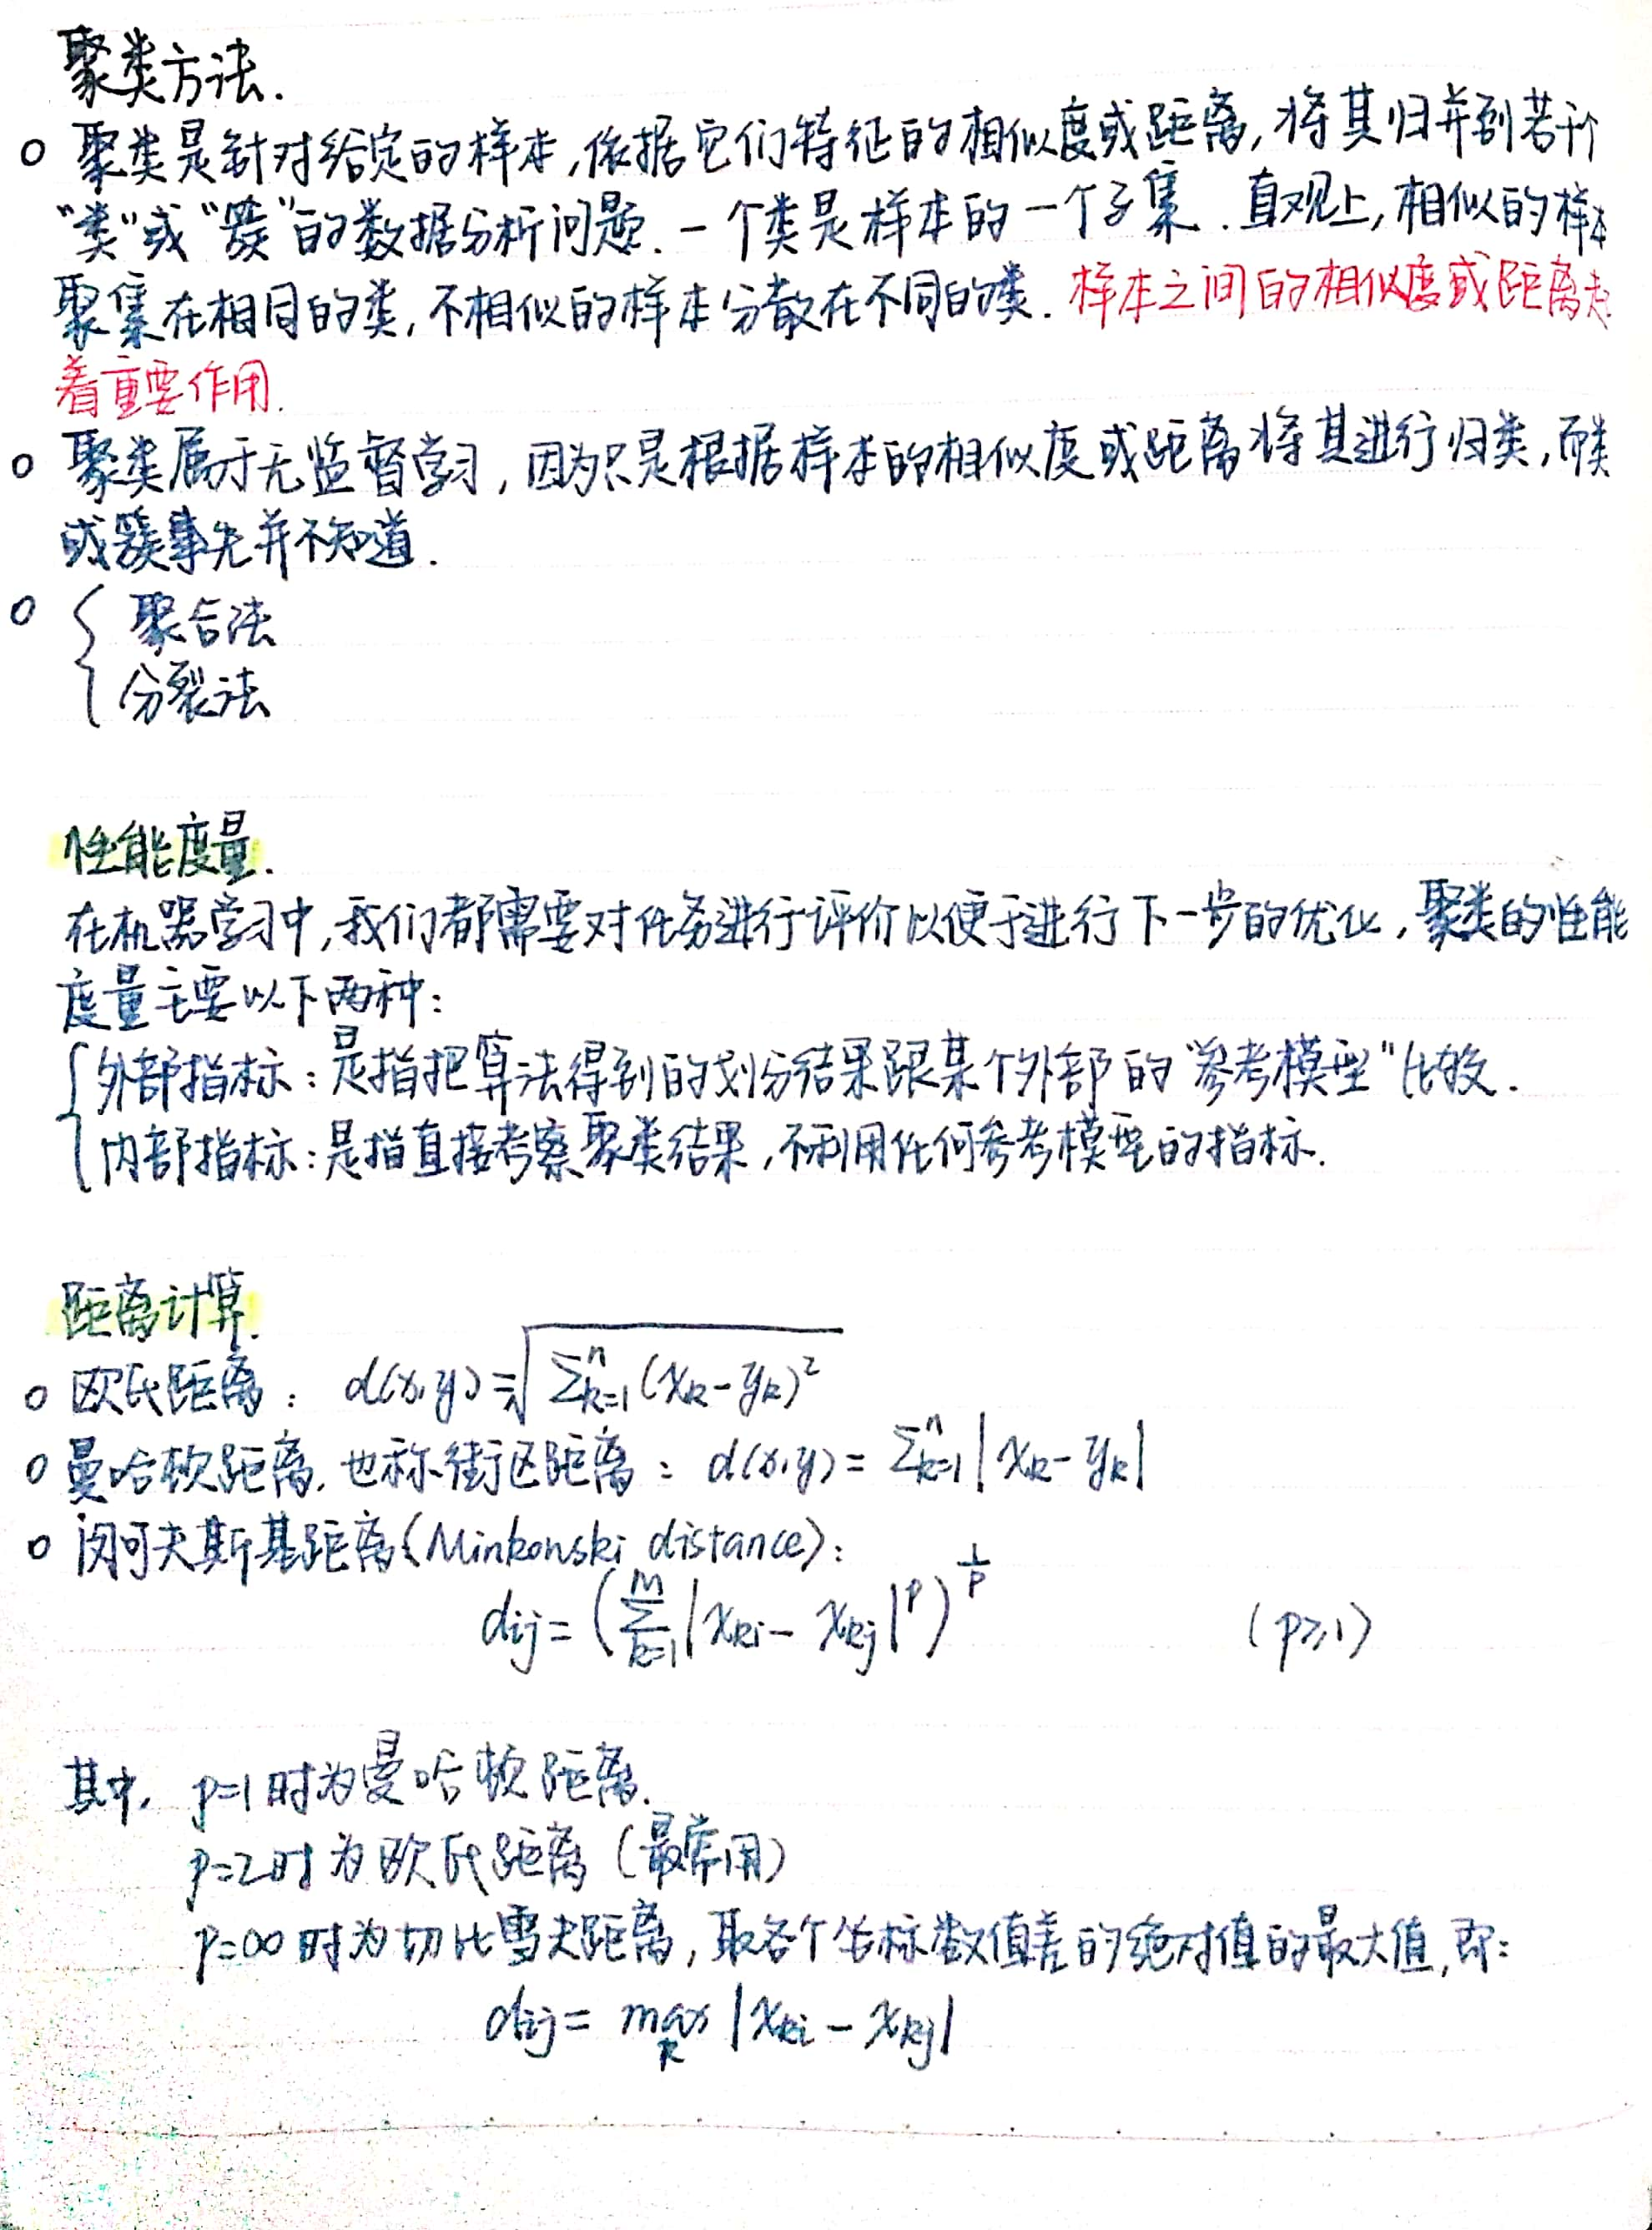 聚类方法.
○ 聚类是针对给定的样本,依据它们特征的相似度或距离,将其归并到若干个
"类"或"簇"的数据分析问题.一个类是样本的一个子集.直观上,相似的样本
聚集在相同的类,不相似的样本分散在不同的类.样本之间的相似度或距离起
着重要作用.
○ 聚类属于无监督学习,因为只是根据样本的相似度或距离将其进行归类,而类
或簇事先并不知道.
○ { 聚合法
分裂法
性能度量.
在机器学习中,我们都需要对任务进行评价以便于进行下一步的优化,聚类的性能
度量主要以下两种:
{ 外部指标:是指把算法得到的划分结果跟某个外部的"参考模型"比较.
内部指标:是指直接考察聚类结果,不利用任何参考模型的指标.
距离计算.
○ 欧氏距离: d(x,y)=√(∑ₖ₌₁ⁿ(xₖ-yₖ)²)
○ 曼哈顿距离,也称街区距离: d(x,y)= ∑ₖ₌₁ⁿ|xₖ-yₖ|
○ 闵可夫斯基距离(Minkowski distance):
dij=(∑ₖ₌₁ᵐ|xki-xkj|^p)^(1/p) (p≥1)
其中, p=1时为曼哈顿距离.
p=2时为欧氏距离(最常用)
p=∞时为切比雪夫距离,取各个坐标数值差的绝对值的最大值,即:
dij= max_k |xki-xkj|